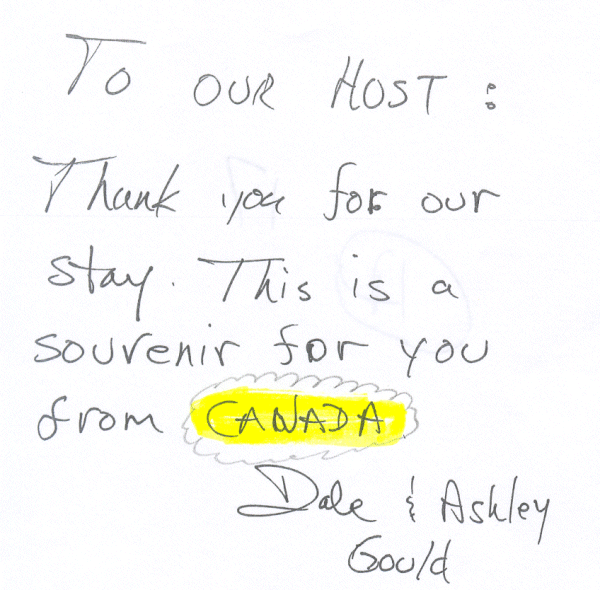 To OUR HOST :
Thank you for our
stay. This is a
souvenir for you
from CANADA
Dale & Ashley
Gould